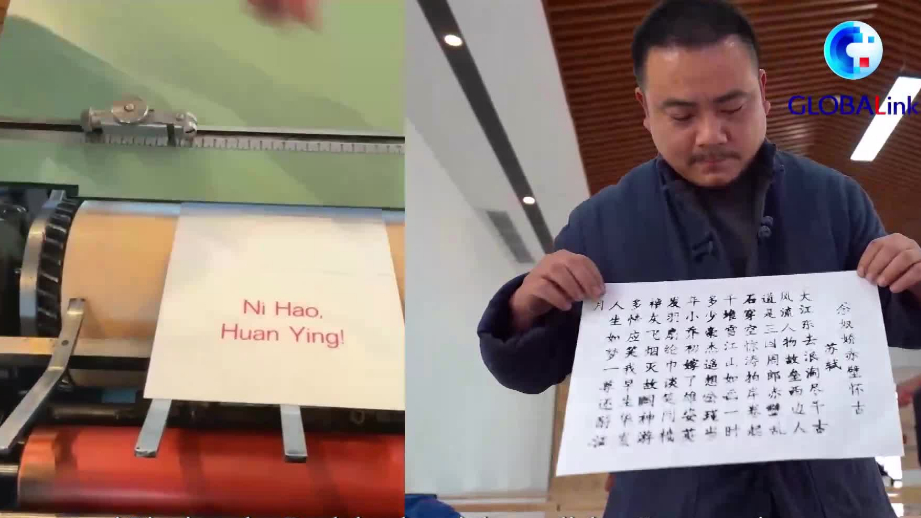 Ni Hao,
Huan Ying!
GLOBALink
念奴娇赤壁怀古
苏轼
大江东去浪淘尽千古
风流人物故垒西边人
道是三国周郎赤壁乱
石穿空惊涛拍岸卷起
千堆雪江山如画一时
多少豪杰遥想公瑾当
年小乔初嫁了雄姿英
发羽扇纶巾谈笑间樯
橹灰飞烟灭故国神游
多情应笑我早生华发
人生如梦一尊还酹江
月